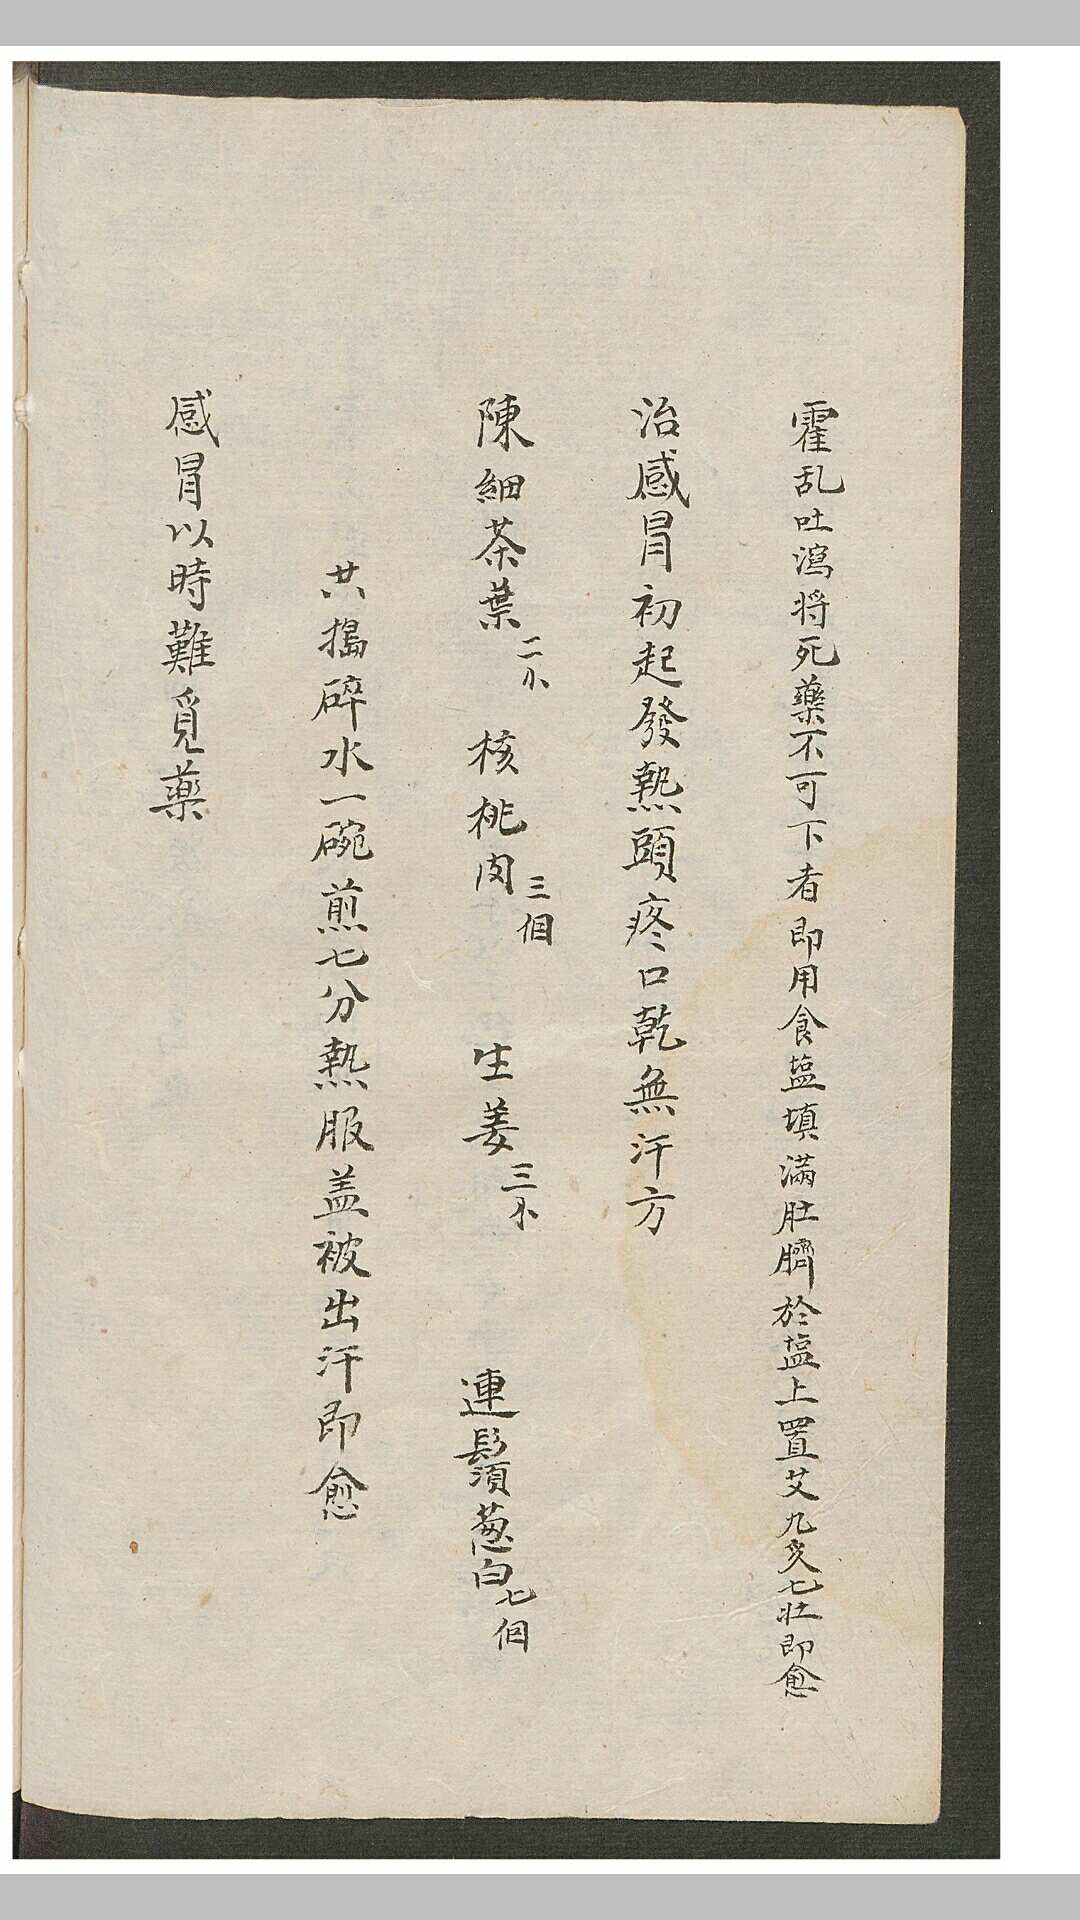 霍乱吐瀉将死藥不可下者即用食塩填滿肚臍於塩上置艾九灸七壯即愈
治感冒初起發熱頭疼口乾無汗方
陳細茶葉二 核桃肉三個 生姜三 連鬚葱白七個
共搗碎水一碗煎七分熱服盖被出汗即愈
感冒以時難覓藥